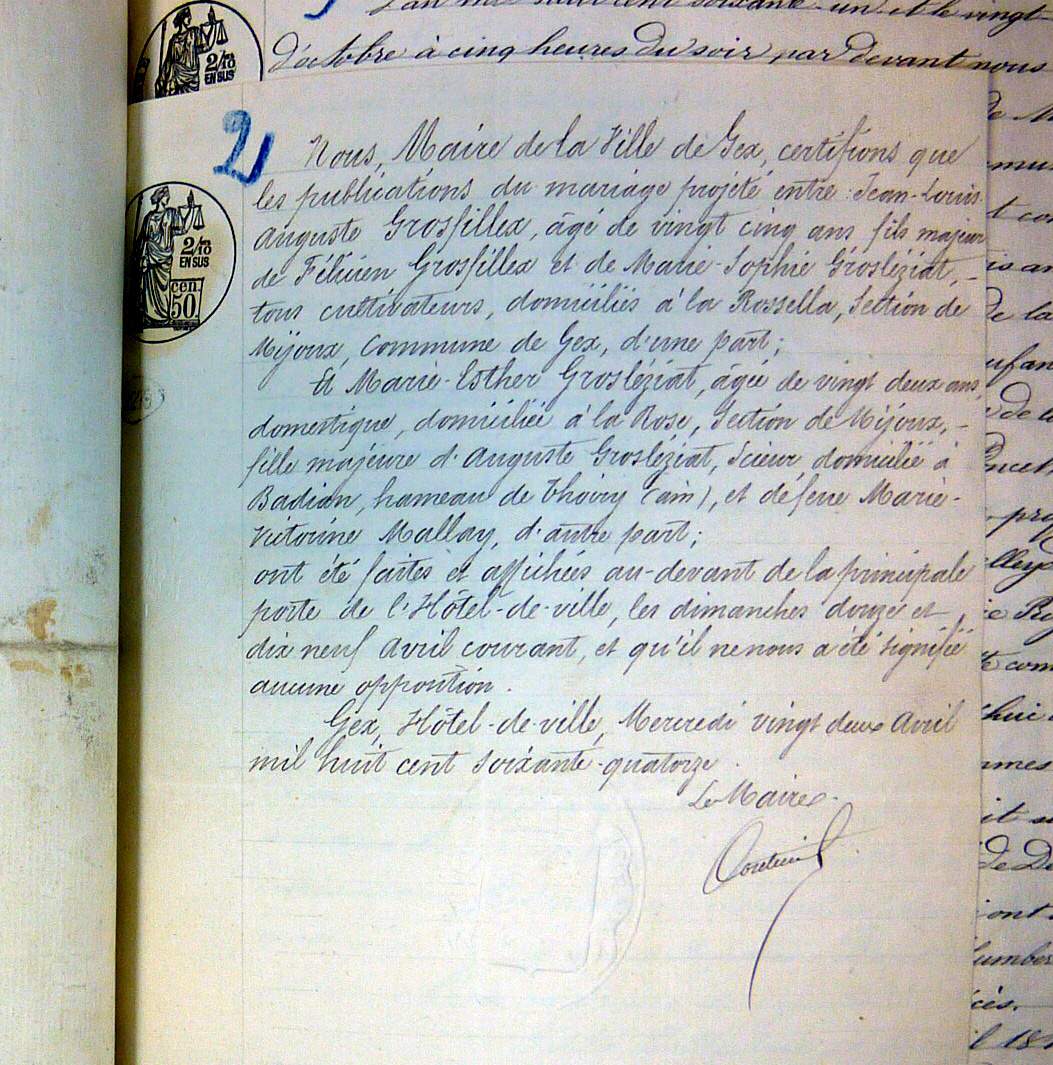 L'an mil huit cent soixante-un et le vingt
d'octobre à cinq heures du soir par devant nous
2/10
EN SUS
2
Nous, Maire de la Ville de Gex, certifions que
les publications du mariage projeté entre : Jean-Louis
Auguste Grosfillex, âgé de vingt cinq ans, fils majeur
de Félicien Grosfillex et de Marie-Sophie Grosléziat, -
tous cultivateurs, domiciliés à la Rossella, Section de
Mijoux, Commune de Gex, d'une part ;
Et Marie-Esther Grosléziat, âgée de vingt deux ans,
domestique, domiciliée à la Rose, Section de Mijoux, -
fille majeure d'Auguste Grosléziat, Scieur, domicilié à
Badian, hameau de Thoiry (ain), et défene Marie-
Victorine Mallay, d'autre part ;
ont été faites et affichées au-devant de la principale
porte de l'Hôtel-de-ville, les dimanches douze et
dix neuf Avril courant, et qu'il ne nous a été signifié
aucune opposition.
Gex, Hôtel-de-ville, Mercredi vingt deux Avril
mil huit cent soixante-quatorze.
Le Maire.
2/10
EN SUS
cen
50
de la